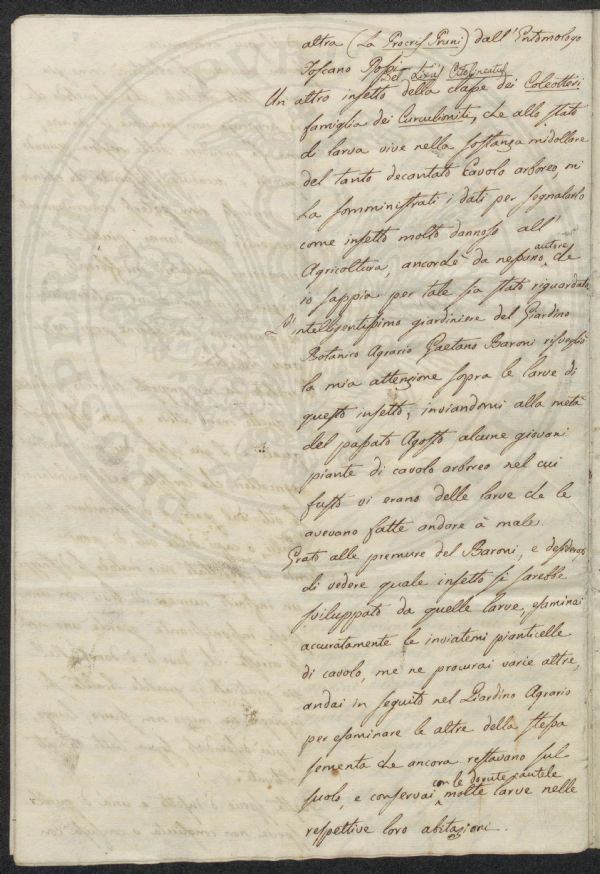 altra (La Procris Pruni) dall'Entomologo
Toscano Rossi
Del Lixus Octolineatus
Un altro insetto della classe dei Coleotteri,
famiglia dei Curculioniti, che allo stato
di larva vive nella sostanza midollare
del tanto decantato Cavolo arboreo, mi
ha somministrati i dati per segnalarlo
come insetto molto dannoso all'
Agricoltura, ancorchè da nessuno autore, che
io sappia per tale sia stato riguardato.
L'intelligentissimo giardiniere del Giardino
Botanico Agrario Gaetano Baroni risvegliò
la mia attenzione sopra le larve di
questo insetto, inviandomi alla metà
del passato Agosto alcune giovani
piante di cavolo arboreo nel cui
fusto vi erano delle larve che le
avevano fatte andare à male.
Grato alle premure del Baroni, e desideroso
di vedere quale insetto si sarebbe
sviluppato da quelle larve, esaminai
accuratamente le inviatemi pianticelle
di cavolo, me ne procurai varie altre,
andai in seguito nel Giardino Agrario
per esaminare le altre della stessa
sementa che ancora restavano sul
suolo, e conservai con le dovute cautele molte larve nelle
respettive loro abitazioni.